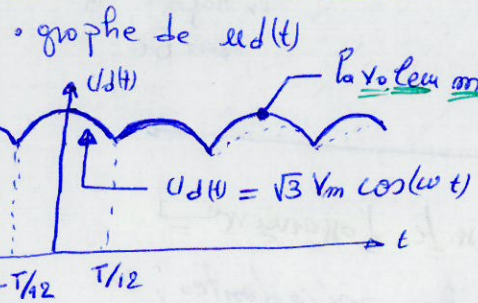 • graphe de ud(t)
Ud(t)
la valeur m
Ud(t) = √3 Vm cos(ωt)
t
-T/12
T/12